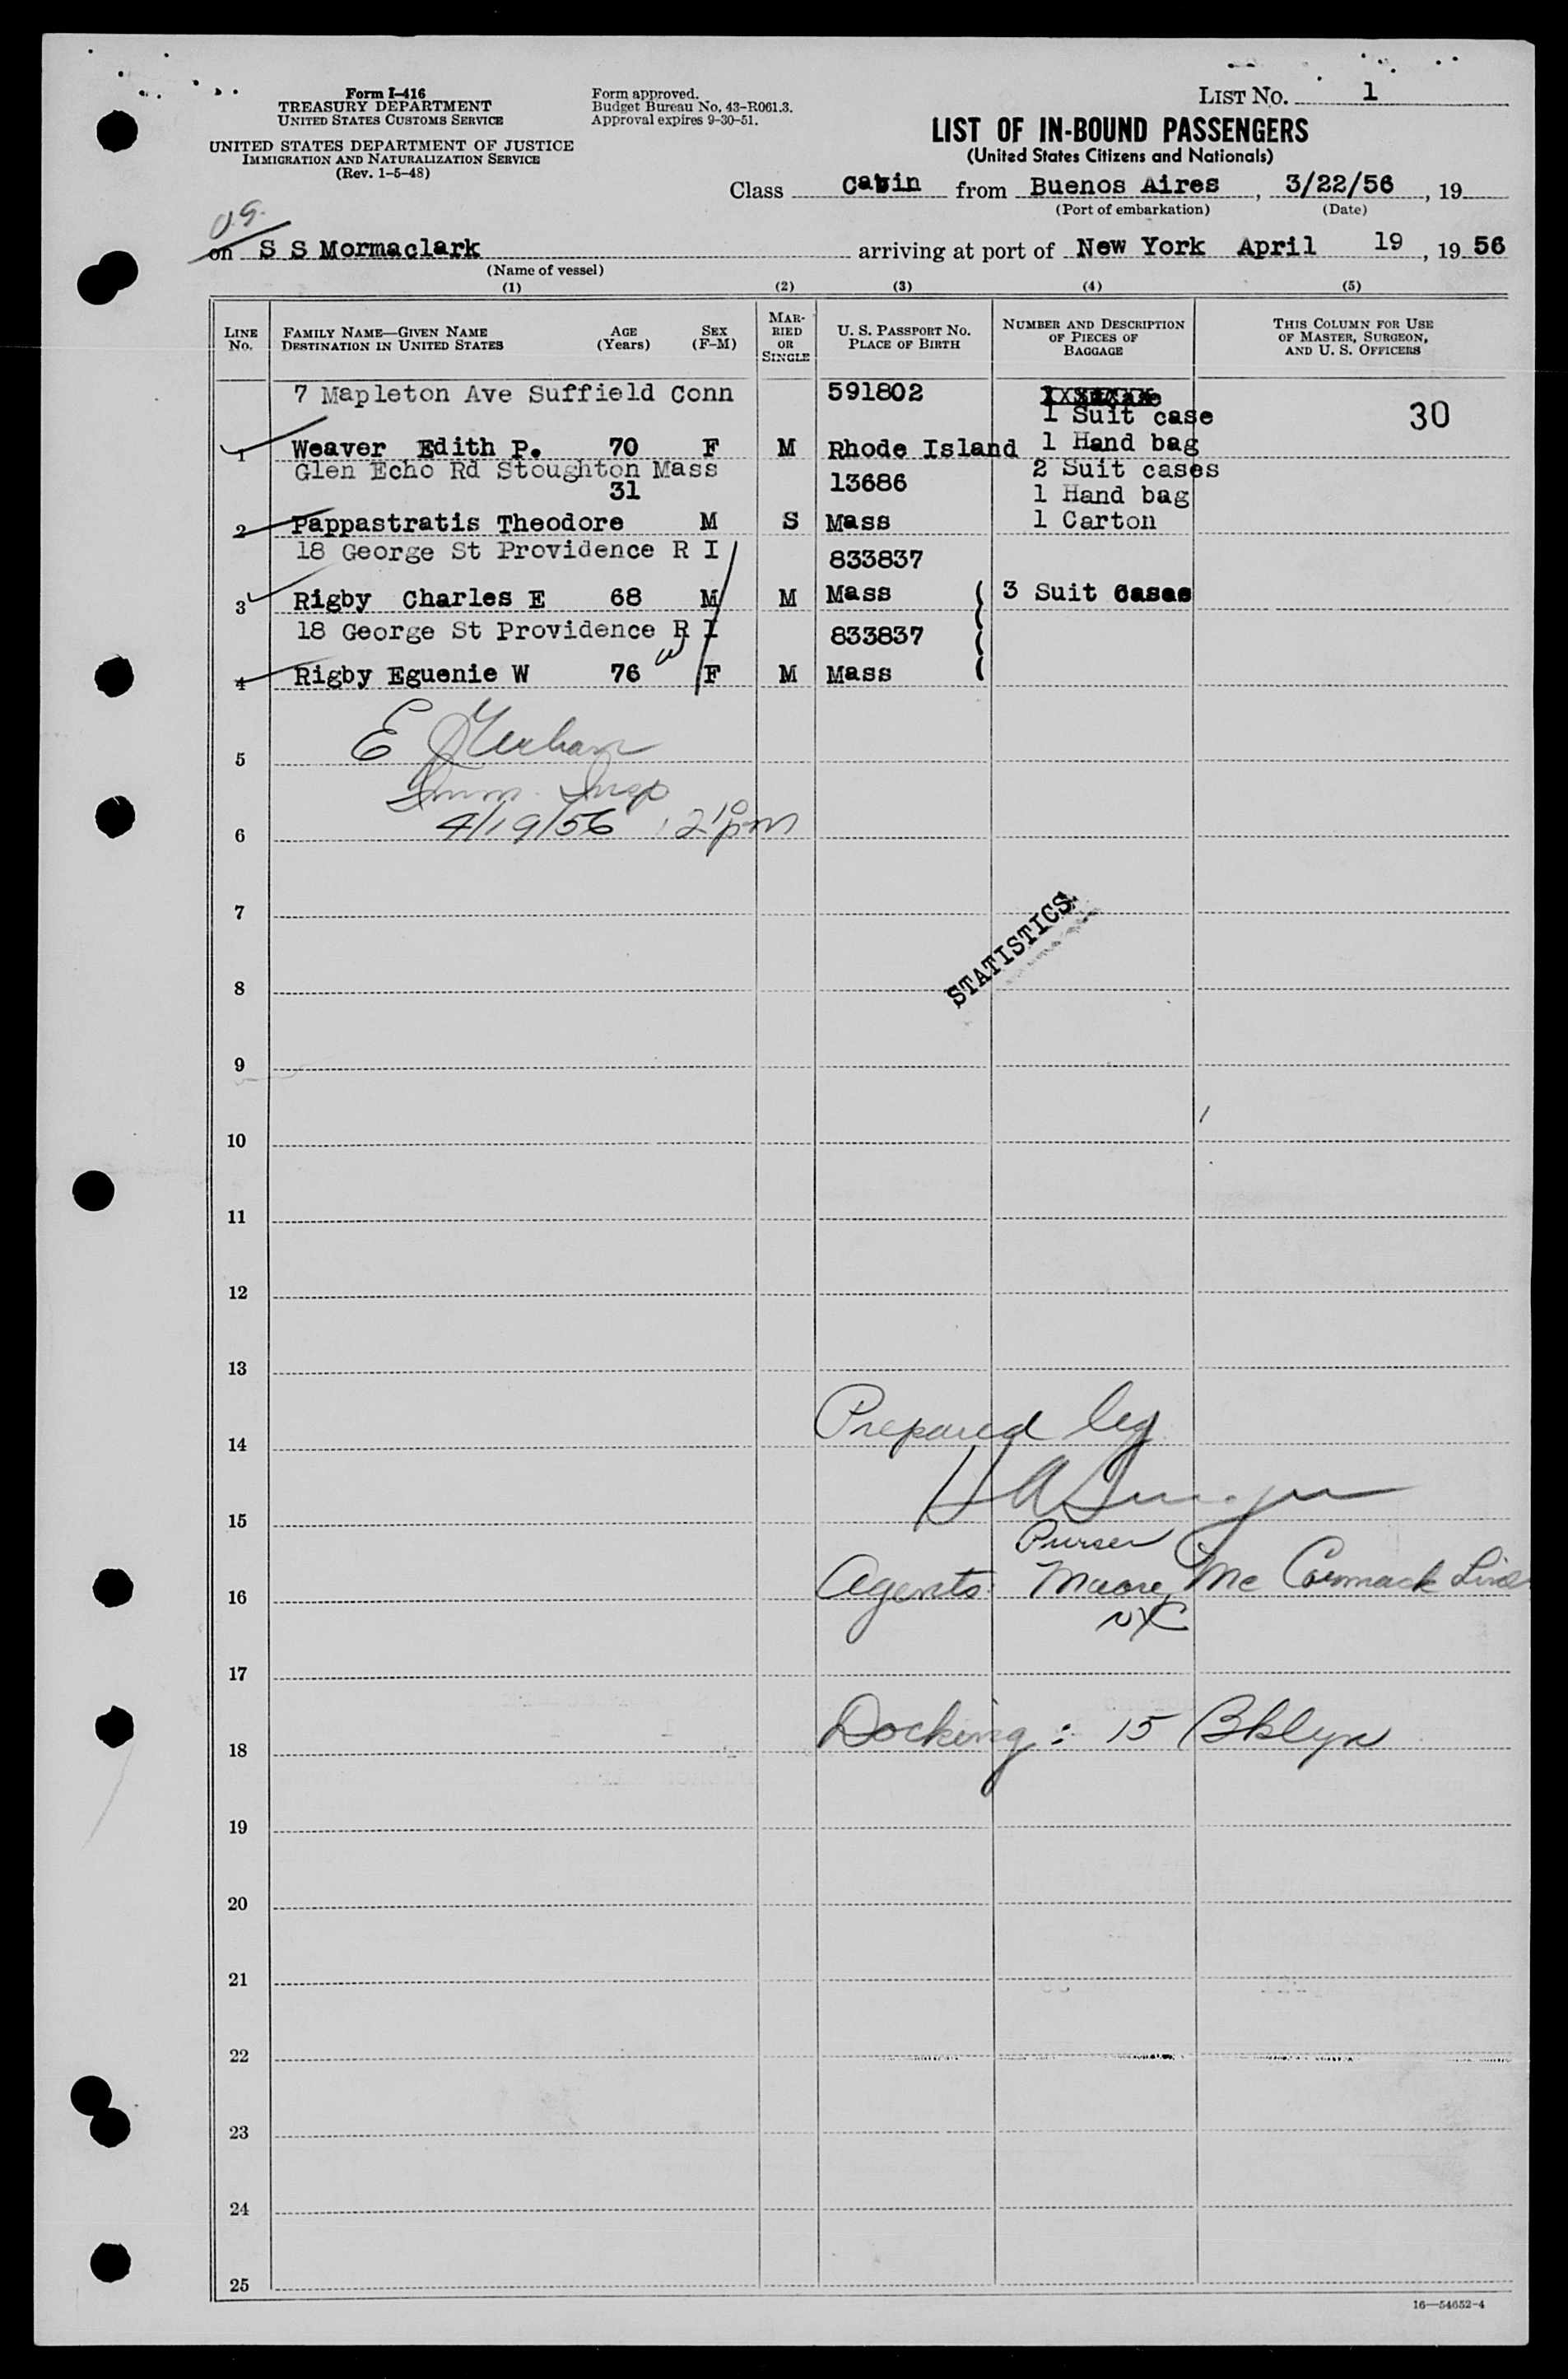 Form I-416
TREASURY DEPARTMENT
UNITED STATES CUSTOMS SERVICE
UNITED STATES DEPARTMENT OF JUSTICE
IMMIGRATION AND NATURALIZATION SERVICE
(Rev. 1-5-48)
Form approved.
Budget Bureau No. 43-R061.3.
Approval expires 9-30-51.
LIST NO. 1
LIST OF IN-BOUND PASSENGERS
(United States Citizens and Nationals)
Class Cabin from Buenos Aires, 3/22/56, 19
(Port of embarkation) (Date)
on S S Mormaclark arriving at port of New York April 19, 19 56
(Name of vessel)
(1) (2) (3) (4) (5)
LINE NO.
FAMILY NAME—GIVEN NAME
DESTINATION IN UNITED STATES
AGE
(Years)
SEX
(F-M)
MAR-
RIED
OR
SINGLE
U. S. PASSPORT NO.
PLACE OF BIRTH
NUMBER AND DESCRIPTION
OF PIECES OF
BAGGAGE
THIS COLUMN FOR USE
OF MASTER, SURGEON,
AND U. S. OFFICERS
7 Mapleton Ave Suffield Conn 591802
1 Suit case 30
1 Weaver Edith P. 70 F M Rhode Island 1 Hand bag
Glen Echo Rd Stoughton Mass 2 Suit cases
31 13686 1 Hand bag
2 Pappastratis Theodore M S Mass 1 Carton
18 George St Providence R I 833837
3 Rigby Charles E 68 M M Mass 3 Suit Cases
18 George St Providence R I 833837
4 Rigby Eguenie W 76 F M Mass
E
5
Imm. Insp
6 4/19/56 12 10 pm
7
STATISTICS
8
9
10
11
12
13
14 Prepared by
15
Purser
16 Agents: Moore Mc Cormack Lines
NYC
17
18 Docking: 15 Bklyn
19
20
21
22
23
24
25
16—54652-4